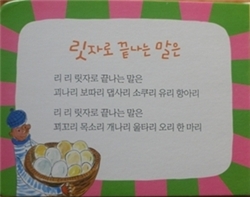 릿자로 끝나는 말은
리 리 릿자로 끝나는 말은
괴나리 보따리 댑사리 소쿠리 유리 항아리
리 리 릿자로 끝나는 말은
꾀꼬리 목소리 개나리 울타리 오리 한 마리